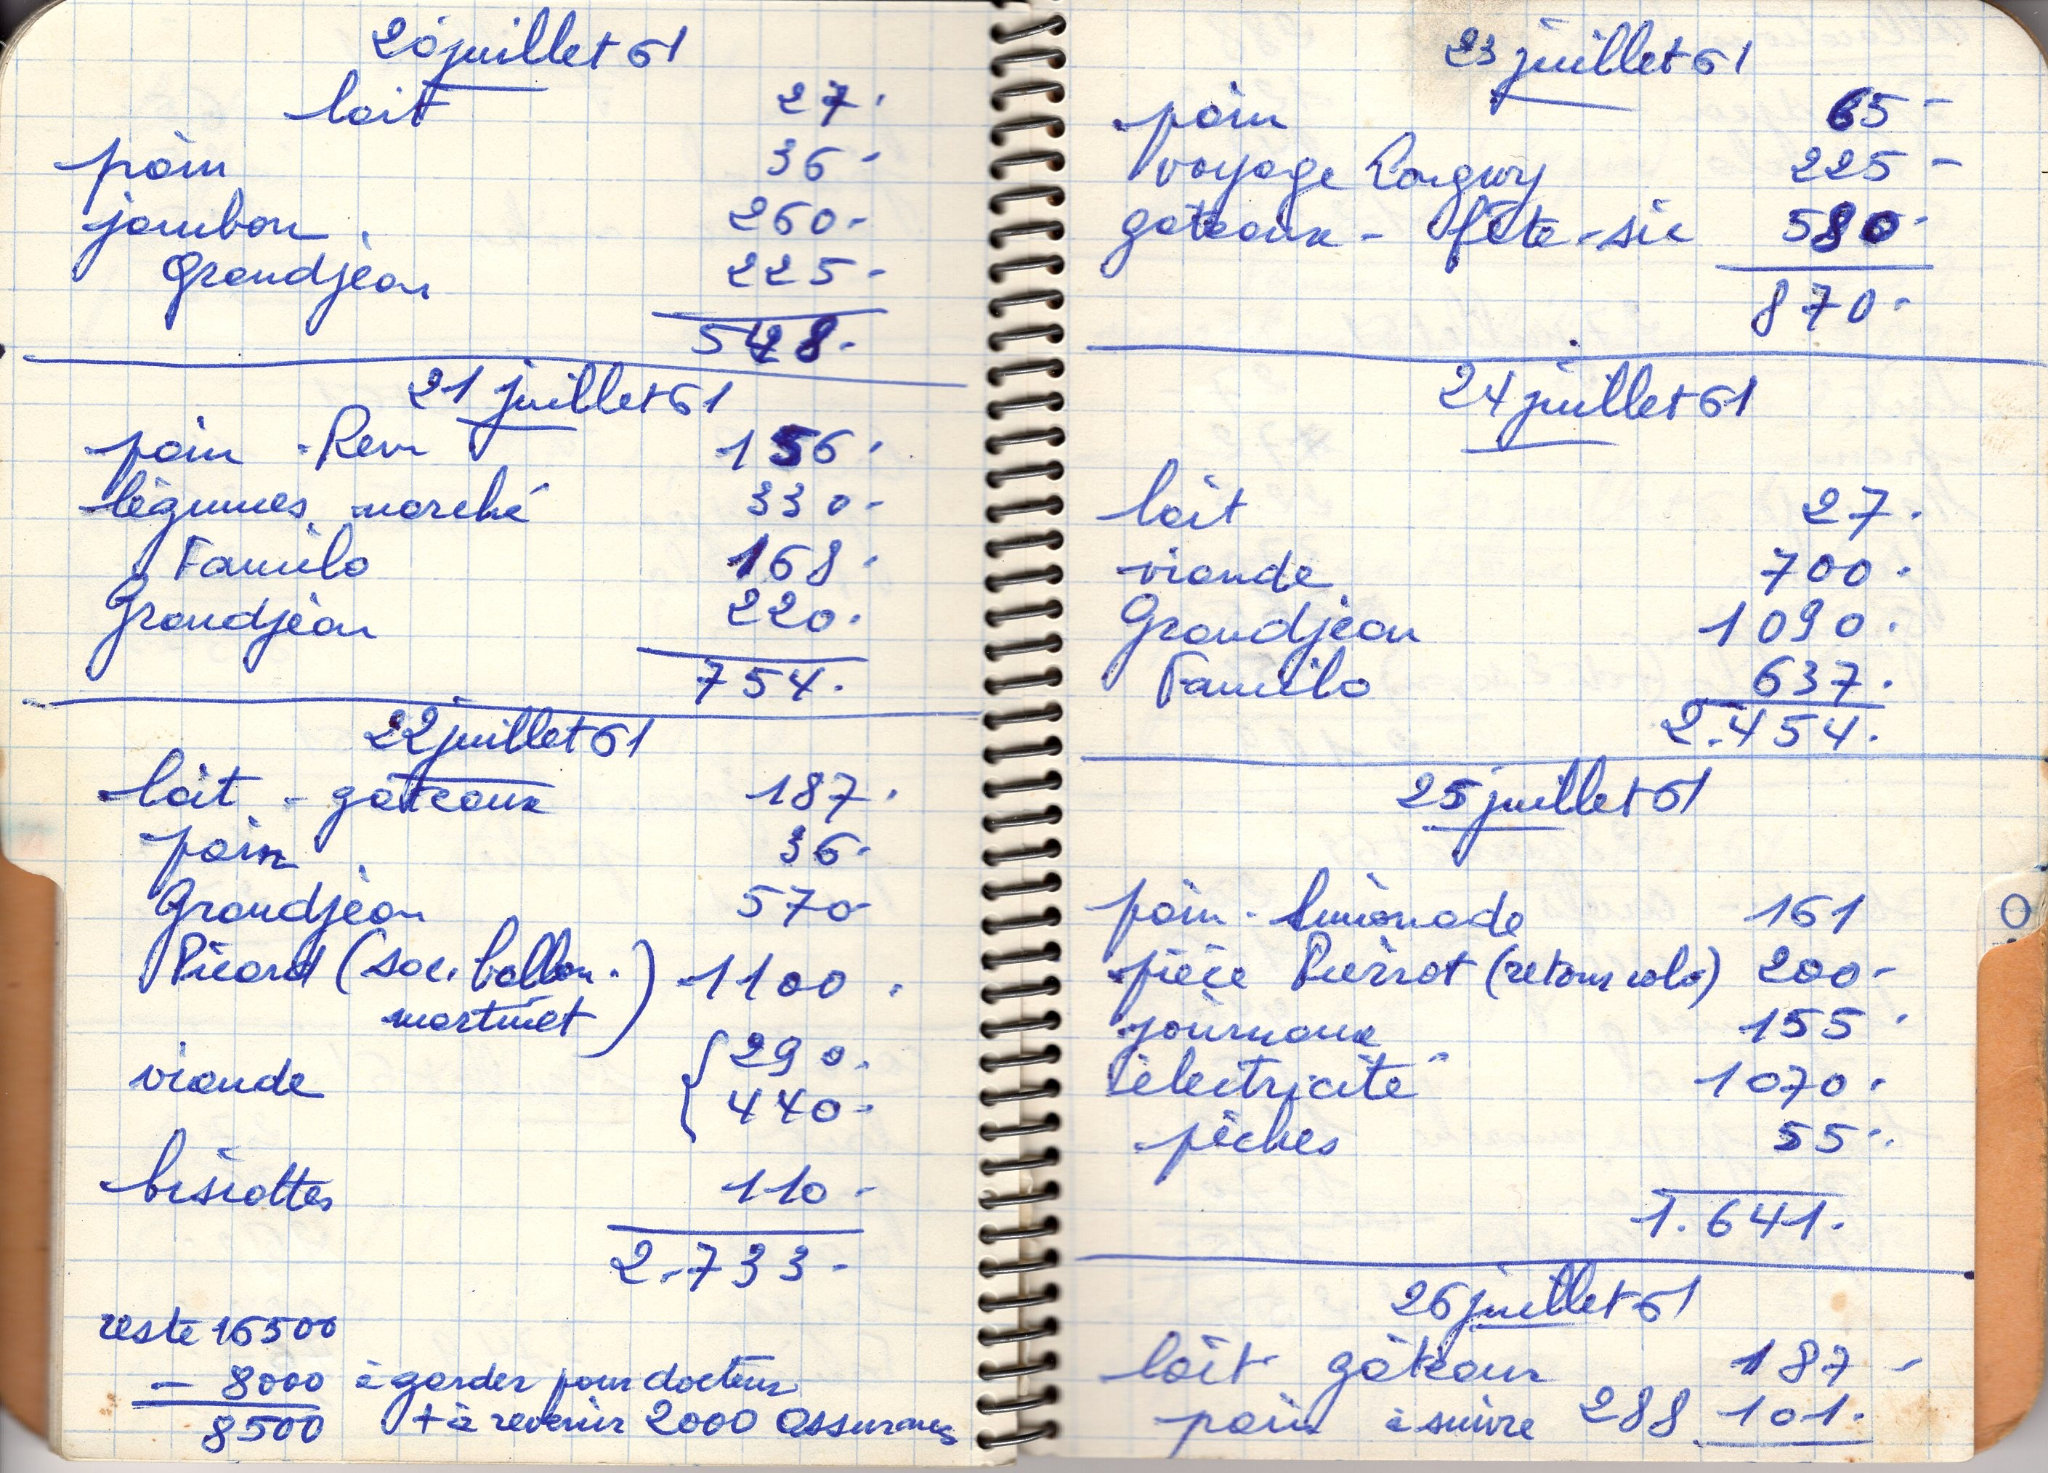 20 juillet 61
lait 27.
pain 36-
jambon. 260-
Grandjean 225-
548.
21 juillet 61
pain - Rem 156.
légumes marché 330-
Familo 168.
Grandjean 220.
754.
22 juillet 61
lait - gâteaux 187.
pain 36-
Grandjean 570-
Picard (sac. ballon. 1100.
martinet)
viande { 290.
440-
biscottes 110-
2.733-
reste 16500
- 8000 à garder pour docteur
8500 + à revenir 2000 assurances
23 juillet 61
pain 65-
voyage Longwy 225-
gâteaux - fête - sic 580-
870-
24 juillet 61
lait 27.
viande 700.
Grandjean 1090.
Familo 637.
2.454.
25 juillet 61
pain - limonade 161
pièce Pierrot (retour colo) 200-
journaux 155.
électricité 1070.
pêches 55-.
1.641.
26 juillet 61
lait gâteaux 187-
pain à suivre 288 101.